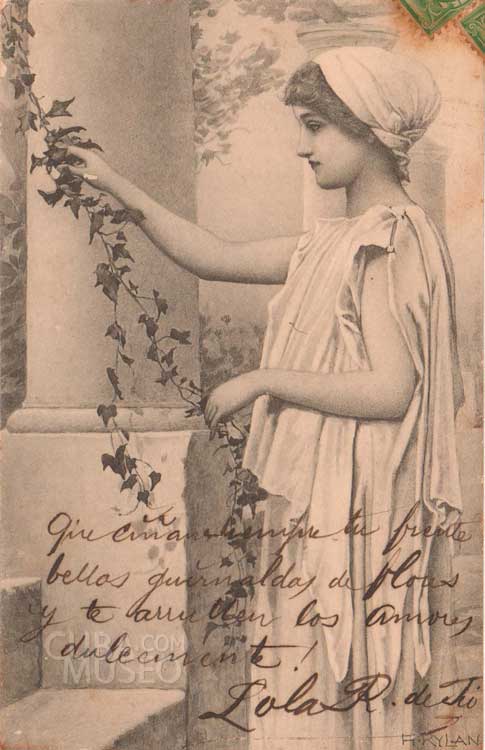 Que ciñan siempre tu frente
bellas guirnaldas de flores
y te arrullen los amores
dulcemente!
Lola R. de Tió
CUBA.COM
MUSEO
F. KYLAN